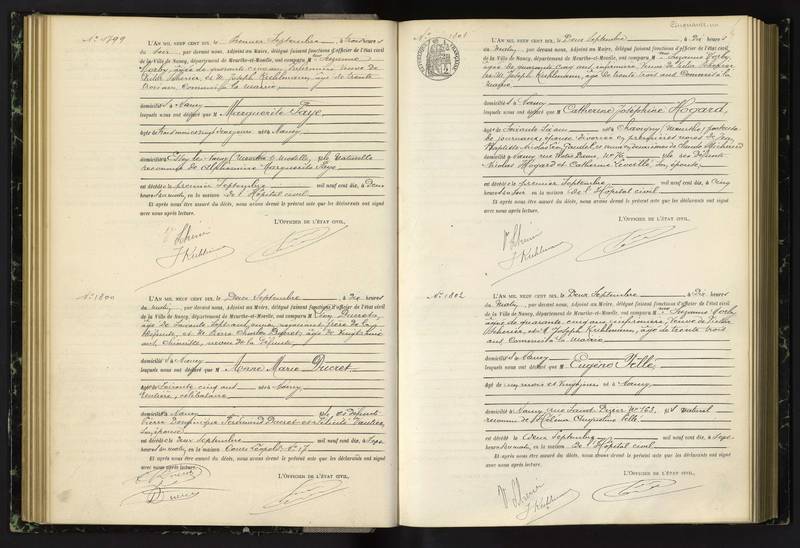 N° 1799
L'AN MIL NEUF CENT DIX, le Premier Septembre, à trois heures
du soir, par devant nous, Adjoint au Maire, délégué faisant fonctions d'officier de l'état civil
de la Ville de Nancy, département de Meurthe-et-Moselle, ont comparu M Suzanne
Corby, âgée de quarante cinq ans, infirmière veuve de
Victor Scherier, et M. Joseph Kuhlmann, âgé de trente
trois ans commis à la mairie
domiciliés à Nancy
lesquels nous ont déclaré que M Marguerite Faye,
âgée de trois mois vingt jours née à Nancy
domiciliée (Meurthe & Moselle), fille naturelle
reconnue de Alphonsine Marguerite Faye
est décédée le premier Septembre mil neuf cent dix, à Deux
heures du , en la maison de l'Hôpital civil
Et après nous être assuré du décès, nous avons dressé le présent acte que les déclarants ont signé
avec nous après lecture.
L'OFFICIER DE L'ÉTAT CIVIL,
N° 1800
L'AN MIL NEUF CENT DIX, le Deux Septembre, à Dix heures
du matin, par devant nous, Adjoint au Maire, délégué faisant fonctions d'officier de l'état civil
de la Ville de Nancy, département de Meurthe-et-Moselle, ont comparu M Ducret,
âgé de soixante sept ans,
et de Marie Charles Ducret, âgé de
ans, chimiste, neveu de la défunte
domiciliés à Nancy
lesquels nous ont déclaré que M Anne Marie Ducret
âgée de soixante cinq ans née à Nancy
rentière, célibataire
domiciliée à Nancy fille de défunts
Pierre Dominique Ferdinand Ducret et
son épouse
est décédée le deux Septembre mil neuf cent dix, à Sept
heures du matin, en la maison Cours Léopold N° 17
Et après nous être assuré du décès, nous avons dressé le présent acte que les déclarants ont signé
avec nous après lecture.
L'OFFICIER DE L'ÉTAT CIVIL,
Ducret
N° 1801
L'AN MIL NEUF CENT DIX, le Deux Septembre, à Dix heures
du matin, par devant nous, Adjoint au Maire, délégué faisant fonctions d'officier de l'état civil
de la Ville de Nancy, département de Meurthe-et-Moselle, ont comparu M Suzanne Corby,
âgée de quarante cinq ans infirmière veuve de Victor Scherier
et M. Joseph Kuhlmann, âgé de trente trois ans commis à la
mairie
domiciliés à Nancy
lesquels nous ont déclaré que M Catherine Joséphine Hogard,
âgée de soixante six ans née à Chavigny (Meurthe), porteuse
de journaux, épouse divorcée en premières noces de Jean
Baptiste Nicolas
domiciliée à Nancy rue N° 76 fille des défunts
Nicolas Hogard et Catherine son épouse
est décédée le premier Septembre mil neuf cent dix, à Cinq
heures du soir, en la maison de l'Hôpital civil
Et après nous être assuré du décès, nous avons dressé le présent acte que les déclarants ont signé
avec nous après lecture.
L'OFFICIER DE L'ÉTAT CIVIL,
N° 1802
L'AN MIL NEUF CENT DIX, le Deux Septembre, à Dix heures
du matin, par devant nous, Adjoint au Maire, délégué faisant fonctions d'officier de l'état civil
de la Ville de Nancy, département de Meurthe-et-Moselle, ont comparu M Suzanne Corby
âgée de quarante cinq ans infirmière, veuve de Victor
Scherier, et M. Joseph Kuhlmann, âgé de trente trois
ans commis à la mairie
domiciliés à Nancy
lesquels nous ont déclaré que M Eugène Pelle,
âgé de cinq mois et vingt jours né à Nancy,
domicilié à Nancy, rue Saint Dizier N° 163, fils naturel
reconnu de Héléna Augustine Pelle
est décédé le deux Septembre mil neuf cent dix, à Sept
heures du matin, en la maison de l'Hôpital civil
Et après nous être assuré du décès, nous avons dressé le présent acte que les déclarants ont signé
avec nous après lecture.
L'OFFICIER DE L'ÉTAT CIVIL,